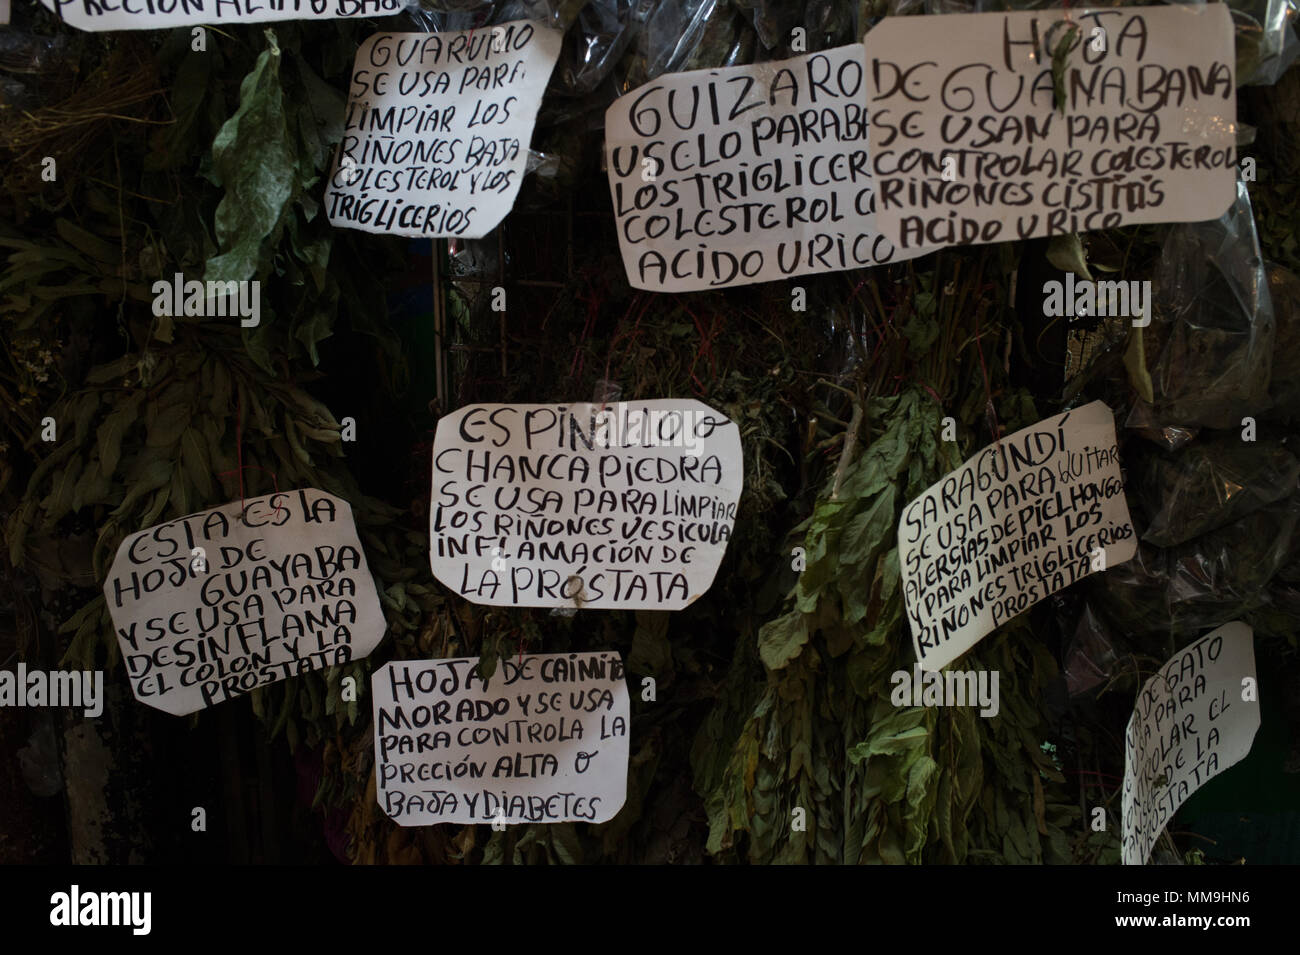 PRECIÓN ALTA O BAJ
GUARUMO
SE USA PARA
LIMPIAR LOS
RIÑONES BAJA
COLESTEROL Y LOS
TRIGLICERIOS
GUIZARO
USELO PARA BA
LOS TRIGLICER
COLESTEROL
ACIDO URICO
HOJA
DE GUANABANA
SE USAN PARA
CONTROLAR COLESTEROL
RIÑONES CISTITIS
ACIDO URICO
ESPINILLO O
CHANCA PIEDRA
SE USA PARA LIMPIAR
LOS RIÑONES VESICULA
INFLAMACIÓN DE
LA PRÓSTATA
SARAGUNDÍ
SE USA PARA QUITAR
ALERGÍAS DE PIEL HONGO
Y PARA LIMPIAR LOS
RIÑONES TRIGLICERIOS
PRÓSTATA
ESTA ES LA
HOJA DE
GUAYABA
Y SE USA PARA
DESINFLAMA
EL COLON Y LA
PRÓSTATA
HOJA DE CAIMITO
MORADO Y SE USA
PARA CONTROLA LA
PRECIÓN ALTA O
BAJA Y DIABETES
DE GATO
SA PARA
TROLAR EL
DE LA
RÓSTATA
alamy
Image ID: MM9HN6
www.alamy.com